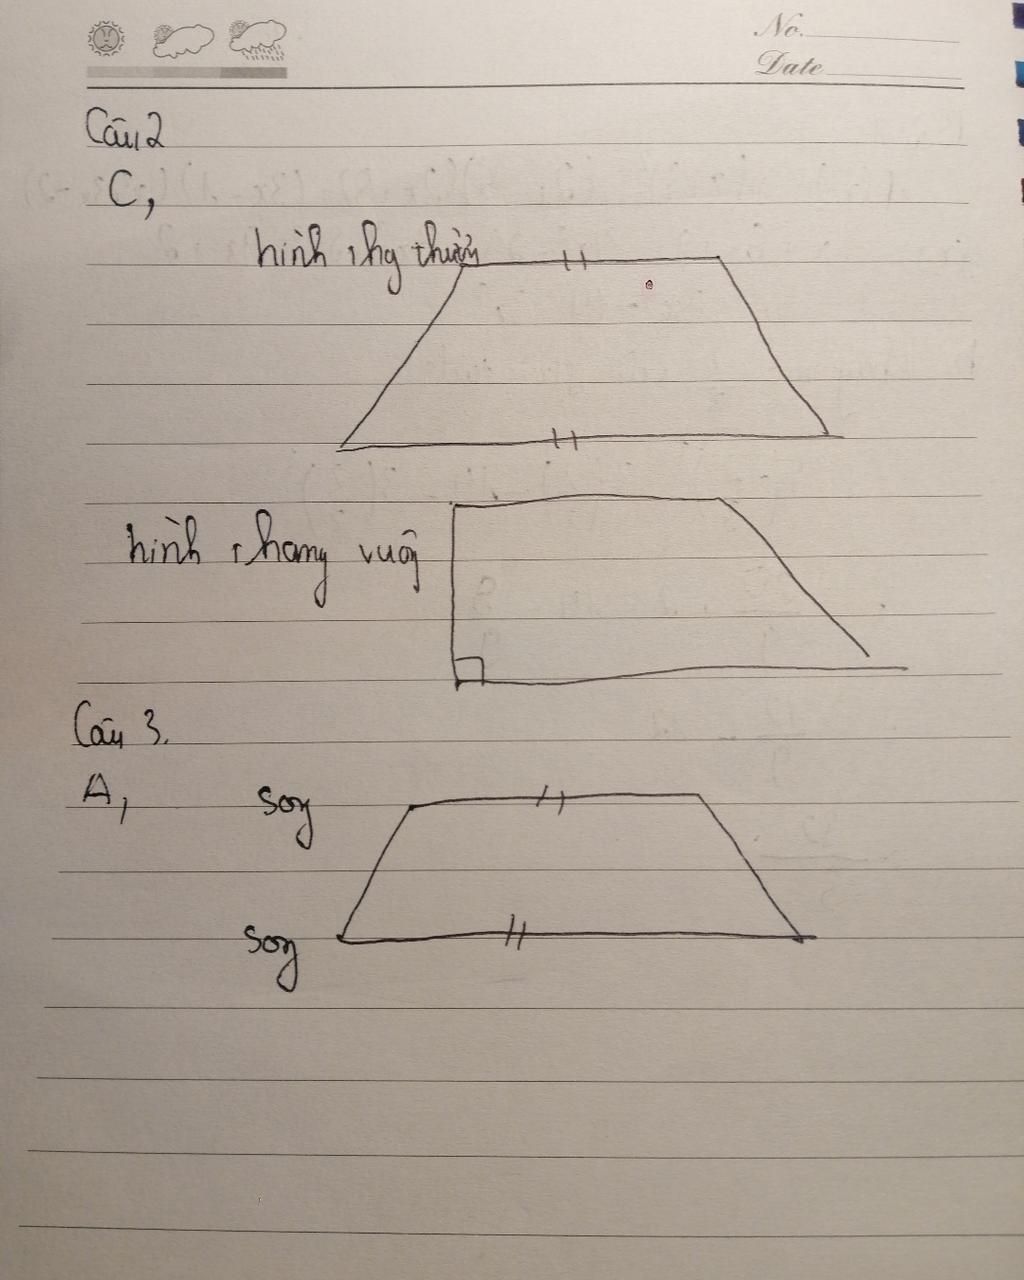 No.
Date
Câu 2
C,
hình thg thường
hình thang vuông
Câu 3.
A,
song
song